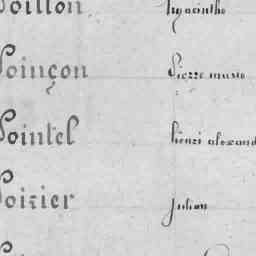 Poillon hyacinthe
Poinçon Pierre marie
Pointel henri alexand
Poirier Julien